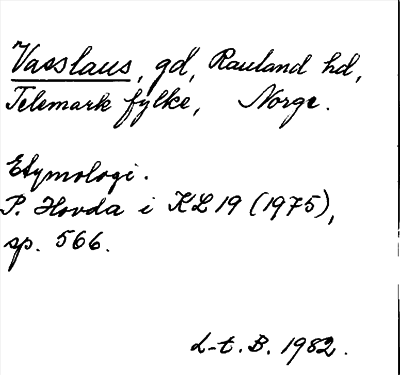 Vasslaus, gd, Rauland hd,
Telemark fylke, Norge.
Etymologi.
P. Hovda i KL 19 (1975),
sp. 566.
L-t. B. 1982.